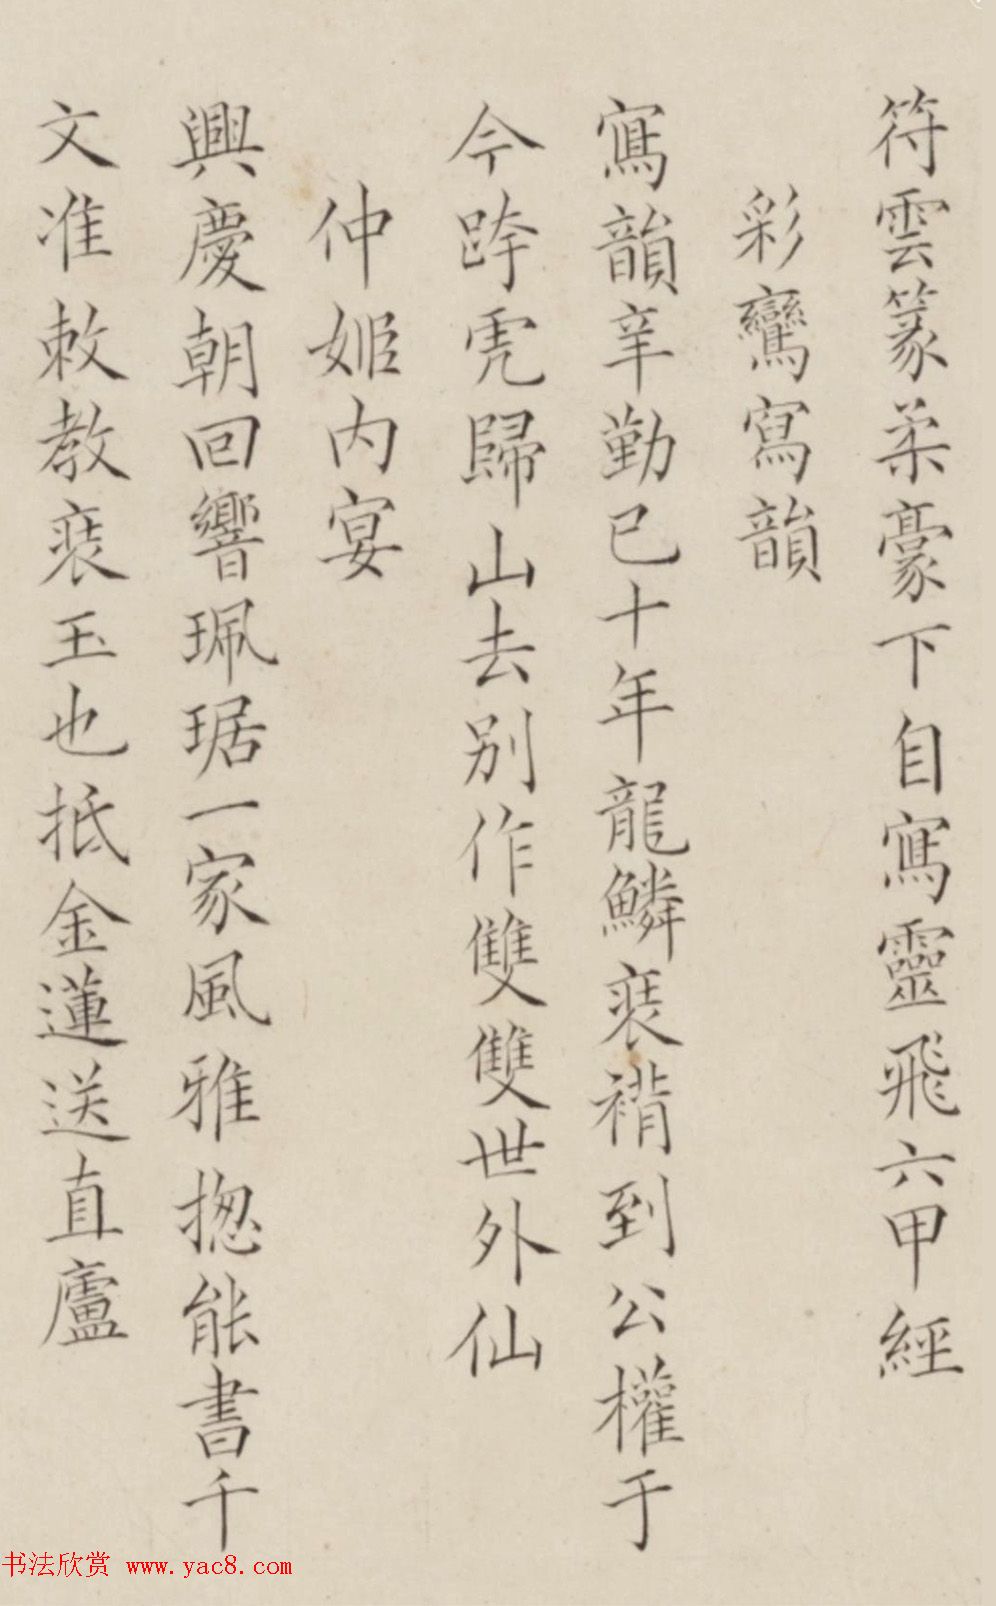 符雲篆柔豪下自寫靈飛六甲經
彩鸞寫韻
寫韻辛勤已十年龍鱗裝褙到公權于
今跨虎歸山去別作雙雙世外仙
仲姬内宴
興慶朝回響珮琚一家風雅揔能書千
文准敕教裝玉也抵金蓮送直廬
书法欣赏 www.yac8.com